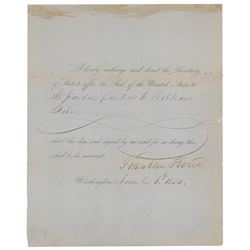 I hereby authorize and direct the Secretary
of State to affix the Seal of the United States to
the pardon granted to William
dated this day, and signed by me and for so doing this
shall be his warrant.
Franklin Pierce
Washington, 6th 1854.